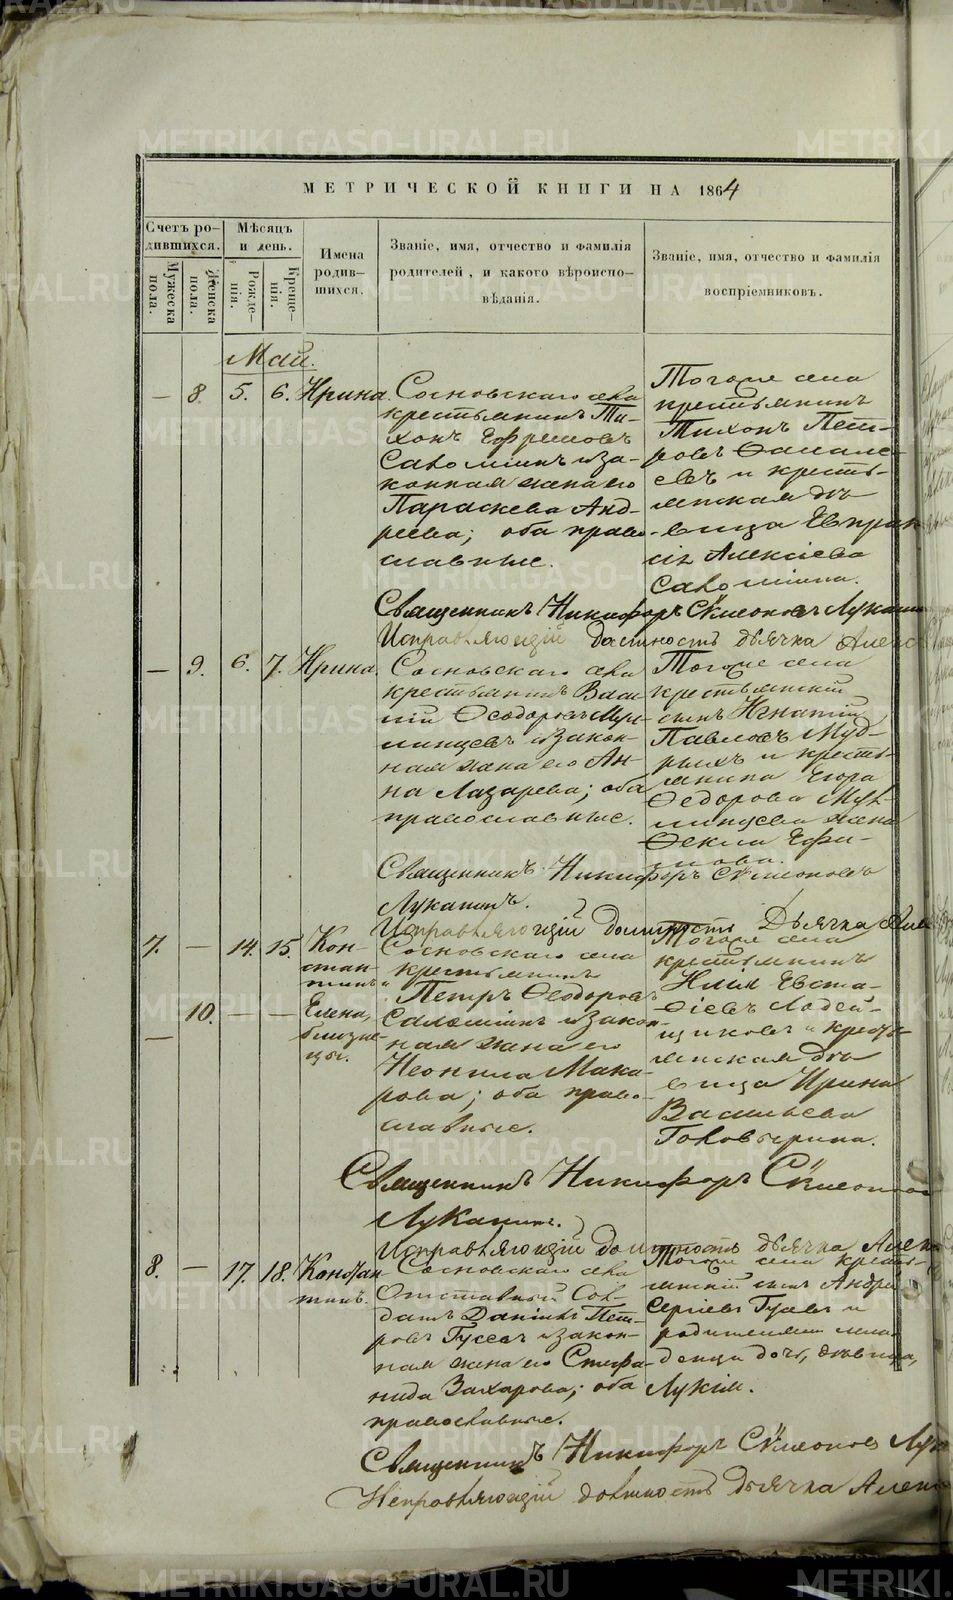 МЕТРИЧЕСКОЙ КНИГИ НА 1864
Счетъ ро-
дившихся.
Мужеска
пола.
Женска
пола.
Мѣсяцъ
и день.
Рожде-
нія.
Креще-
нія.
Имена
родив-
шихся.
Званіе, имя, отчество и фамилія
родителей, и какого вѣроиспо-
вѣданія.
Званіе, имя, отчество и фамилія
воспріемниковъ.
Май.
— 8. 5. 6. Ирина.
Сосновскаго села
крестьянинъ Ти-
хонъ Ефремовъ
и за-
конная жена его
Параскева Анд-
реева; оба право-
славные.
Тогоже села
крестьянинъ
Тихонъ Пет-
ровъ
и кресть-
янская дѣ-
вица
Алексіева
Священникъ Никифоръ Сѵмеоновъ Луканинъ
Исправляющій должность дьячка
— 9. 6. 7. Ирина.
Сосновскаго села
крестьянинъ Васи-
лій Ѳеодоровъ
и закон-
ная жена его Ан-
на Лазарева; оба
православные.
Тогоже села
крестьянскій
сынъ Игнатій
Павловъ Муд-
рыхъ и кресть-
янина Егора
Ѳедорова
жена
Ѳекла Ефи-
мова.
Священникъ Никифоръ Сѵмеоновъ
Луканинъ.
Исправляющій должность Дьячка
7. — 14. 15. Кон-
стан-
тинъ и
— 10. — — Елена,
близне-
цы.
Сосновскаго села
крестьянинъ
Петръ Ѳеодоровъ
и закон-
ная жена его
Неонила Мака-
рова; оба право-
славные.
Тогоже села
крестьянинъ
Евста-
ѳіевъ Лодей-
щиковъ и кресть-
янская дѣ-
вица Ирина
Васильева
Головырина.
Священникъ Никифоръ Сѵмеоновъ
Луканинъ.
Исправляющій должность дьячка
8. — 17. 18. Констан-
тинъ.
Сосновскаго села
Отставный Сол-
датъ Даніилъ Пет-
ровъ Гусевъ и закон-
ная жена его Стефа-
нида Захарова; оба
православные.
Тогоже села кресть-
янскій сынъ Андрей
Сергіевъ Гусевъ и
родителями мла-
денца дочь, дѣвица,
Лукія.
Священникъ Никифоръ Сѵмеоновъ
Исправляющій должность Дьячка
METRIKI.GASO-URAL.RU